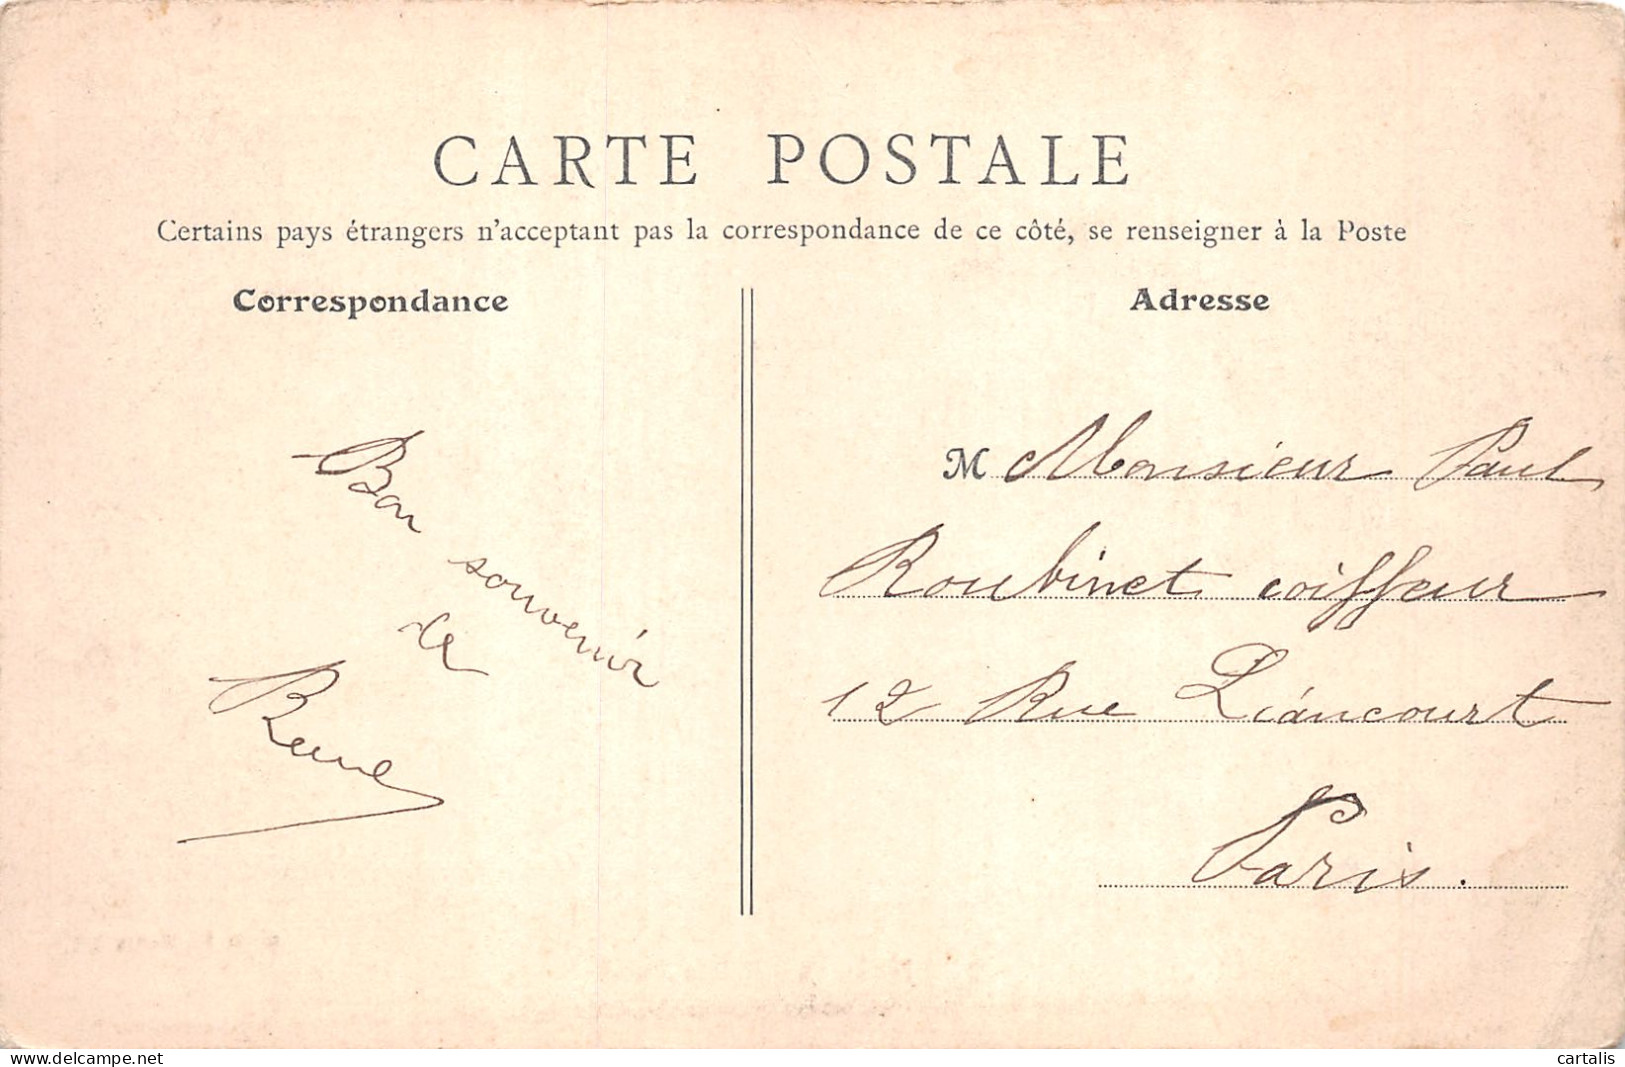 CARTE POSTALE
Certains pays étrangers n'acceptant pas la correspondance de ce côté, se renseigner à la Poste
Correspondance
Bon souvenir
de
René
Adresse
M Monsieur Paul
Roubinet coiffeur
12 Rue Liancourt
Paris.
www.delcampe.net
cartalis